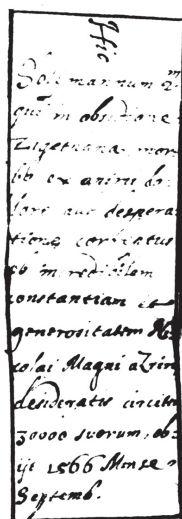 Hic
Solimannum 2m
qui in obsidione
Zigetuana mor
bo ex animi do
lore aut despera
tione correptus
ob incredibilem
constantiam et
generositatem Ni
colai Magni a Zrin
desideratis circiter
30000 suorum, ob
ijt 1566 Mense
Septemb.